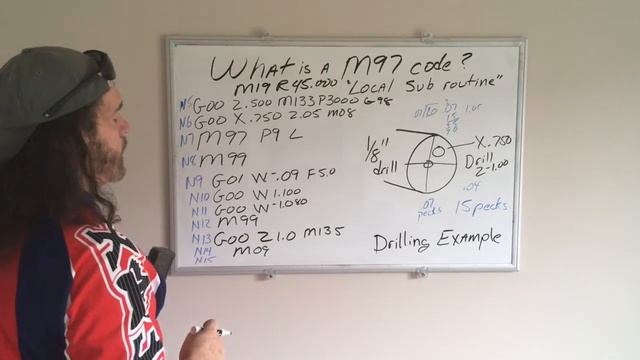 What is a M97 code?
M19 R45.000 "Local Sub routine"
N5 G00 Z.500 M133 P3000 G98
N6 G00 X.750 Z.05 M08
N7 M97 P9 L
N8 M99
N9 G01 W-.09 F5.0
N10 G00 W1.100
N11 G00 W-1.080
N12 M99
N13 G00 Z1.0 M135
N14 M09
N15
1/8"
drill
X.750
Drill
Z-1.00
.04
.07
pecks
15 pecks
Drilling Example